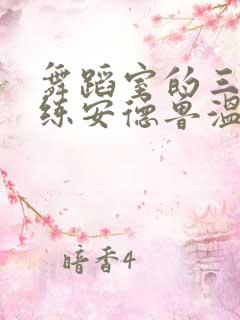 舞蹈室的三
练安德鲁温
暗香4